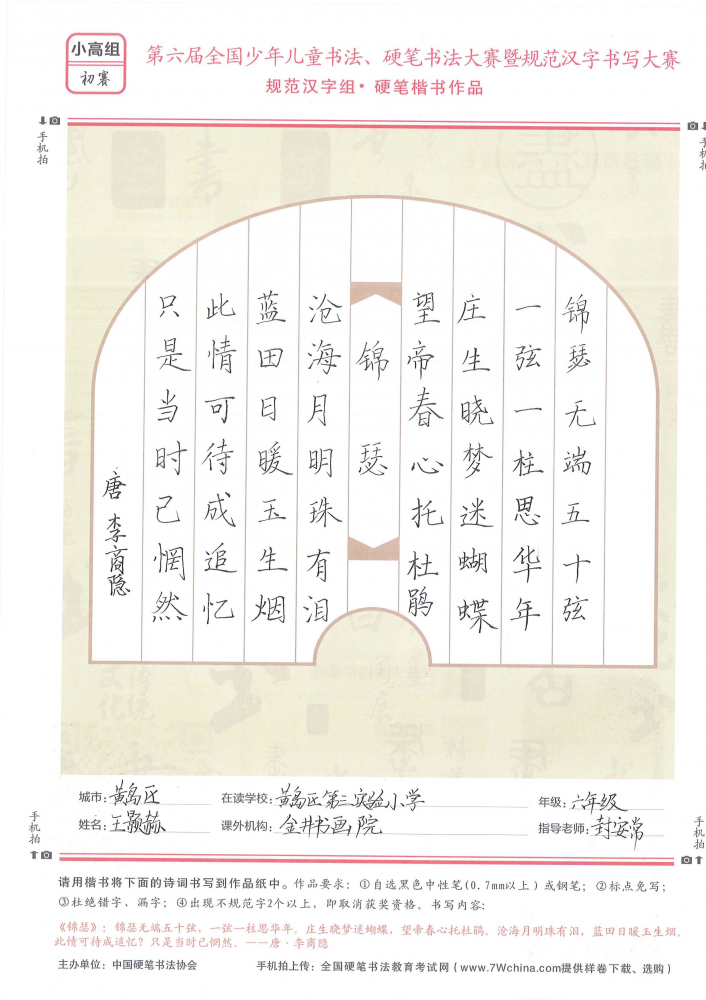 小高组
初赛
第六届全国少年儿童书法、硬笔书法大赛暨规范汉字书写大赛
规范汉字组·硬笔楷书作品
手机拍
手机拍
锦瑟无端五十弦
一弦一柱思华年
庄生晓梦迷蝴蝶
望帝春心托杜鹃
锦瑟
沧海月明珠有泪
蓝田日暖玉生烟
此情可待成追忆
只是当时已惘然
唐 李商隐
城市：黄岛区 在读学校：黄岛区第三实验小学 年级：六年级
姓名：王颢赫 课外机构：金井书画院 指导老师：封安常
手机拍
手机拍
请用楷书将下面的诗词书写到作品纸中。作品要求：①自选黑色中性笔(0.7mm以上）或钢笔；②标点免写；
③杜绝错字、漏字；④出现不规范字2个以上，即取消获奖资格。书写内容：
《锦瑟》：锦瑟无端五十弦，一弦一柱思华年。庄生晓梦迷蝴蝶，望帝春心托杜鹃。沧海月明珠有泪，蓝田日暖玉生烟。
此情可待成追忆？只是当时已惘然。——唐·李商隐
主办单位：中国硬笔书法协会 手机拍上传：全国硬笔书法教育考试网（www.7Wchina.com提供样卷下载、选购）